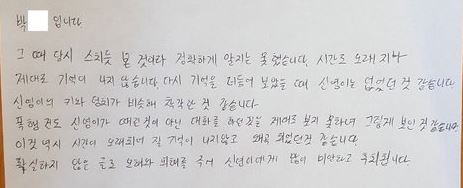 박 입니다.
그 때 당시 스치듯 본 것이라 정확하게 알지는 못했습니다. 시간도 오래 지나
제대로 기억이 나지 않습니다. 다시 기억을 더듬어 보았을 때 신영이는 없었던 것 같습니다.
신영이의 키와 덩치가 비슷해 착각한 것 같습니다.
폭행 건도 신영이가 때린것이 아닌 대화를 하는것을 제대로 보지 못하여 그렇게 보인 것 같습니다.
이것 역시 시간이 오래되어 잘 기억이 나지않고 왜곡 되었던것 같습니다.
확실하지 않은 글로 오해와 피해를 주어 신영이에게 많이 미안하고 후회됩니다.